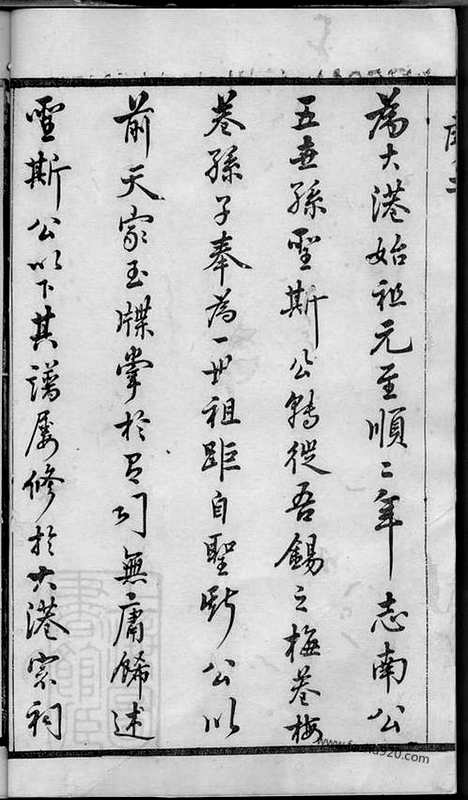 為大港始祖元至順二年志南公
五世孫聖斯公轉徙吾錫之梅巷梅
巷孫子奉為一世祖距自聖斯公以
前天家玉牒掌於有司無庸歸述
聖斯公以下其譜屢修於大港宗祠